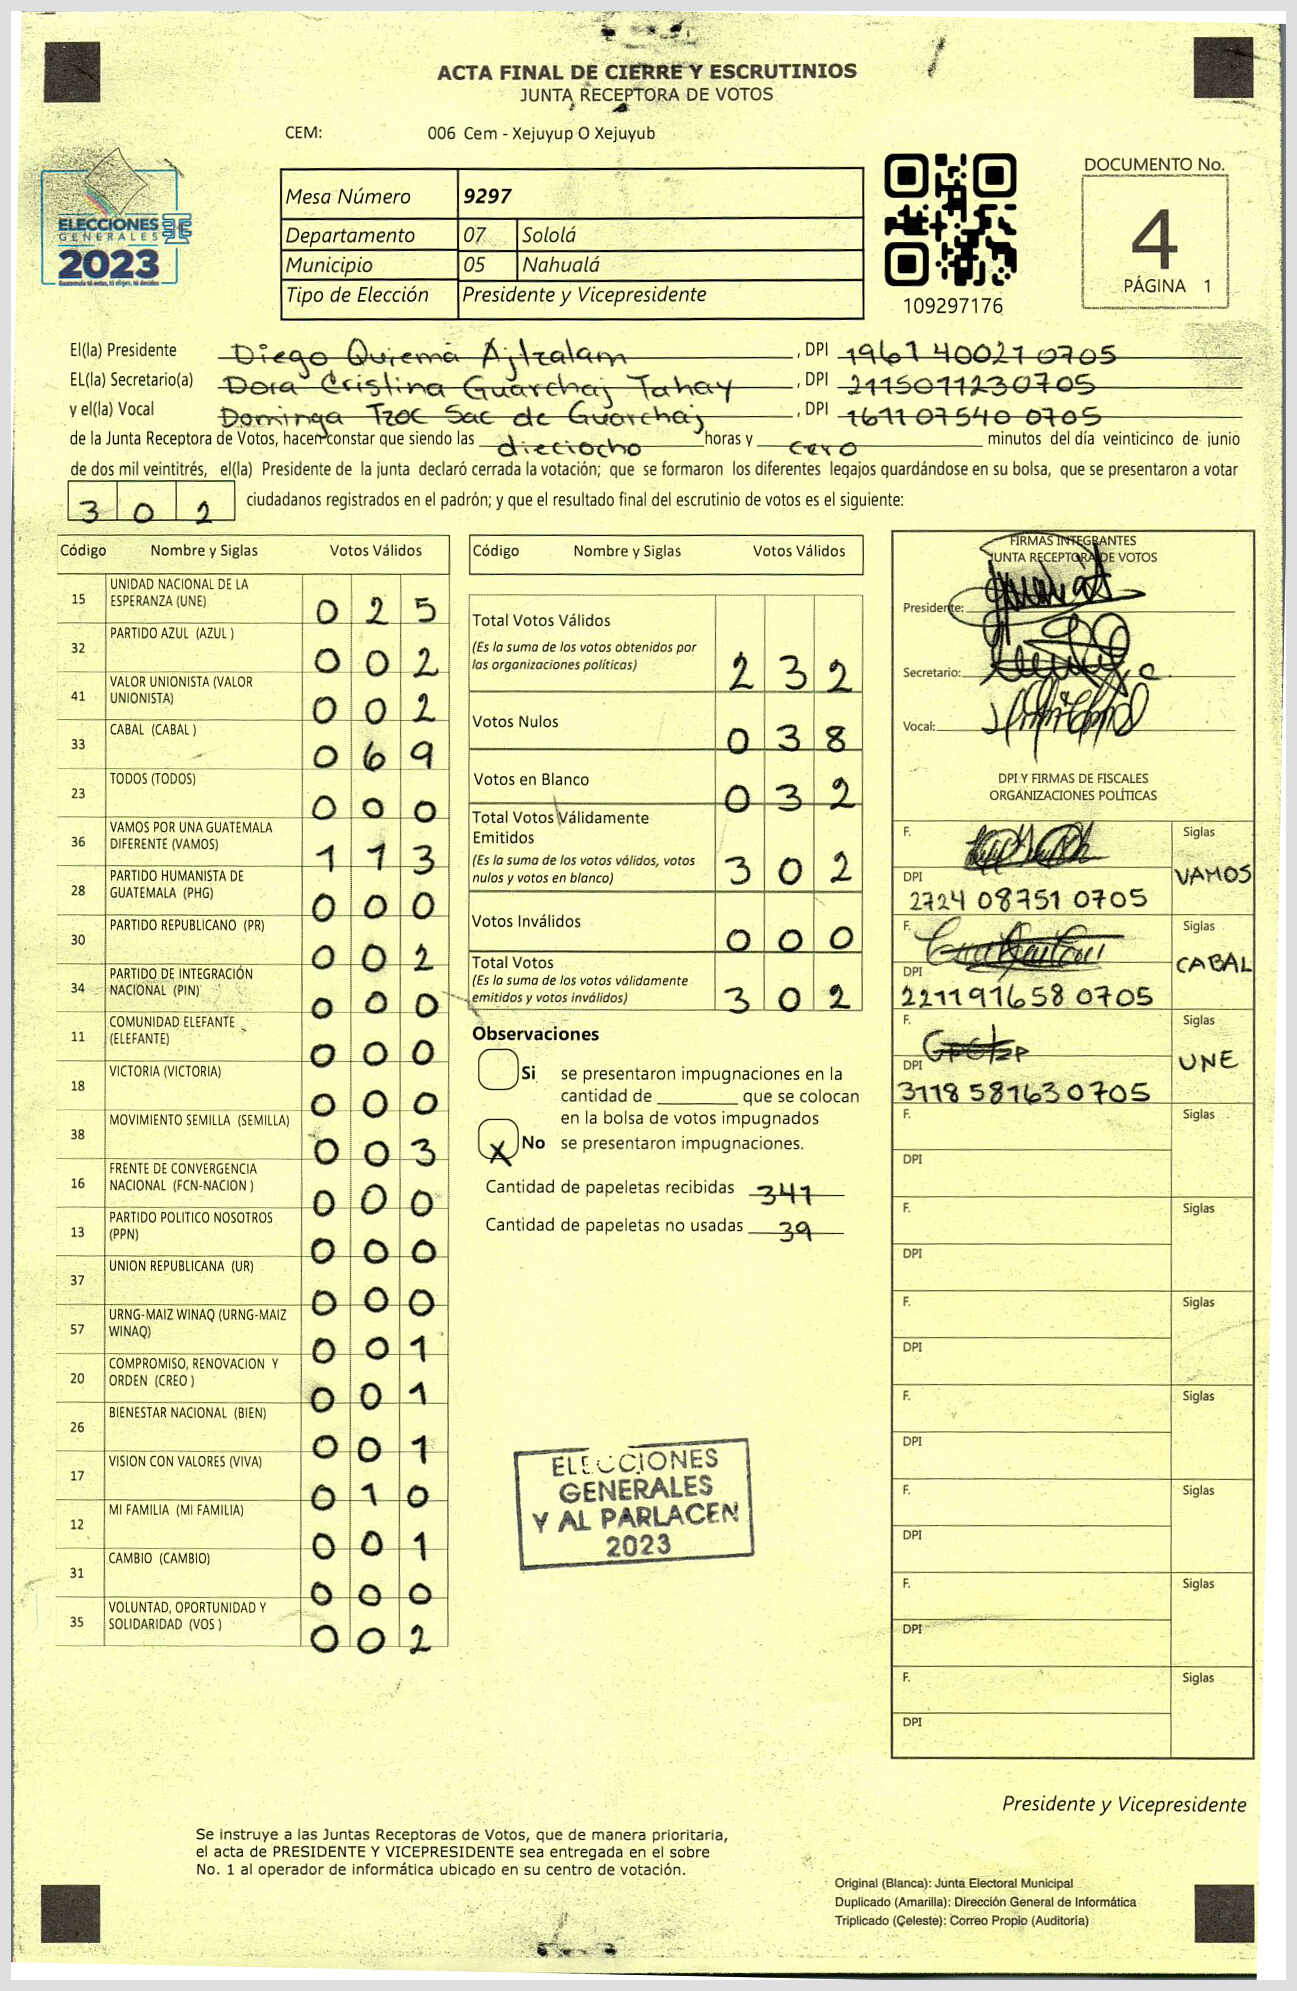 ACTA FINAL DE CIERRE Y ESCRUTINIOS
JUNTA RECEPTORA DE VOTOS
CEM: 006 Cem - Xejuyup O Xejuyub
ELECCIONES
GENERALES
2023
Mesa Número 9297
Departamento 07 Sololá
Municipio 05 Nahualá
Tipo de Elección Presidente y Vicepresidente
109297176
DOCUMENTO No.
4
PÁGINA 1
El(la) Presidente Diego Quiemá Ajtzalam, DPI 1961 40021 0705
EL(la) Secretario(a) Dora Cristina Guarchaj Tahay, DPI 2115011230705
y el(la) Vocal Dominga Tzoc Sac de Guarchaj, DPI 1611 07540 0705
de la Junta Receptora de Votos, hacen constar que siendo las dieciocho horas y cero minutos del día veinticinco de junio
de dos mil veintitrés, el(la) Presidente de la junta declaró cerrada la votación; que se formaron los diferentes legajos quardándose en su bolsa, que se presentaron a votar
302 ciudadanos registrados en el padrón; y que el resultado final del escrutinio de votos es el siguiente:
Código Nombre y Siglas Votos Válidos
15 UNIDAD NACIONAL DE LA ESPERANZA (UNE) 0 2 5
32 PARTIDO AZUL (AZUL ) 0 0 2
41 VALOR UNIONISTA (VALOR UNIONISTA) 0 0 2
33 CABAL (CABAL ) 0 6 9
23 TODOS (TODOS) 0 0 0
36 VAMOS POR UNA GUATEMALA DIFERENTE (VAMOS) 1 1 3
28 PARTIDO HUMANISTA DE GUATEMALA (PHG) 0 0 0
30 PARTIDO REPUBLICANO (PR) 0 0 2
34 PARTIDO DE INTEGRACIÓN NACIONAL (PIN) 0 0 0
11 COMUNIDAD ELEFANTE (ELEFANTE) 0 0 0
18 VICTORIA (VICTORIA) 0 0 0
38 MOVIMIENTO SEMILLA (SEMILLA) 0 0 3
16 FRENTE DE CONVERGENCIA NACIONAL (FCN-NACION ) 0 0 0
13 PARTIDO POLITICO NOSOTROS (PPN) 0 0 0
37 UNION REPUBLICANA (UR) 0 0 0
57 URNG-MAIZ WINAQ (URNG-MAIZ WINAQ) 0 0 1
20 COMPROMISO, RENOVACION Y ORDEN (CREO ) 0 0 1
26 BIENESTAR NACIONAL (BIEN) 0 0 1
17 VISION CON VALORES (VIVA) 0 1 0
12 MI FAMILIA (MI FAMILIA) 0 0 1
31 CAMBIO (CAMBIO) 0 0 0
35 VOLUNTAD, OPORTUNIDAD Y SOLIDARIDAD (VOS ) 0 0 2
Código Nombre y Siglas Votos Válidos
Total Votos Válidos 2 3 2
(Es la suma de los votos obtenidos por
las organizaciones políticas)
Votos Nulos 0 3 8
Votos en Blanco 0 3 2
Total Votos Válidamente
Emitidos 3 0 2
(Es la suma de los votos válidos, votos
nulos y votos en blanco)
Votos Inválidos 0 0 0
Total Votos 3 0 2
(Es la suma de los votos válidamente
emitidos y votos inválidos)
Observaciones
Si se presentaron impugnaciones en la
cantidad de ________ que se colocan
en la bolsa de votos impugnados
X No se presentaron impugnaciones.
Cantidad de papeletas recibidas 341
Cantidad de papeletas no usadas 39
ELECCIONES
GENERALES
Y AL PARLACEN
2023
FIRMAS INTEGRANTES
JUNTA RECEPTORA DE VOTOS
Presidente:
Secretario:
Vocal:
DPI Y FIRMAS DE FISCALES
ORGANIZACIONES POLÍTICAS
F. Siglas
VAMOS
DPI
2724 08751 0705
F. Siglas
CABAL
DPI
2211 91658 0705
F. Siglas
UNE
DPI
3118 58163 0705
F. Siglas
DPI
F. Siglas
DPI
F. Siglas
DPI
F. Siglas
DPI
F. Siglas
DPI
F. Siglas
DPI
F. Siglas
DPI
Presidente y Vicepresidente
Se instruye a las Juntas Receptoras de Votos, que de manera prioritaria,
el acta de PRESIDENTE Y VICEPRESIDENTE sea entregada en el sobre
No. 1 al operador de informática ubicado en su centro de votación.
Original (Blanca): Junta Electoral Municipal
Duplicado (Amarilla): Dirección General de Informática
Triplicado (Celeste): Correo Propio (Auditoría)